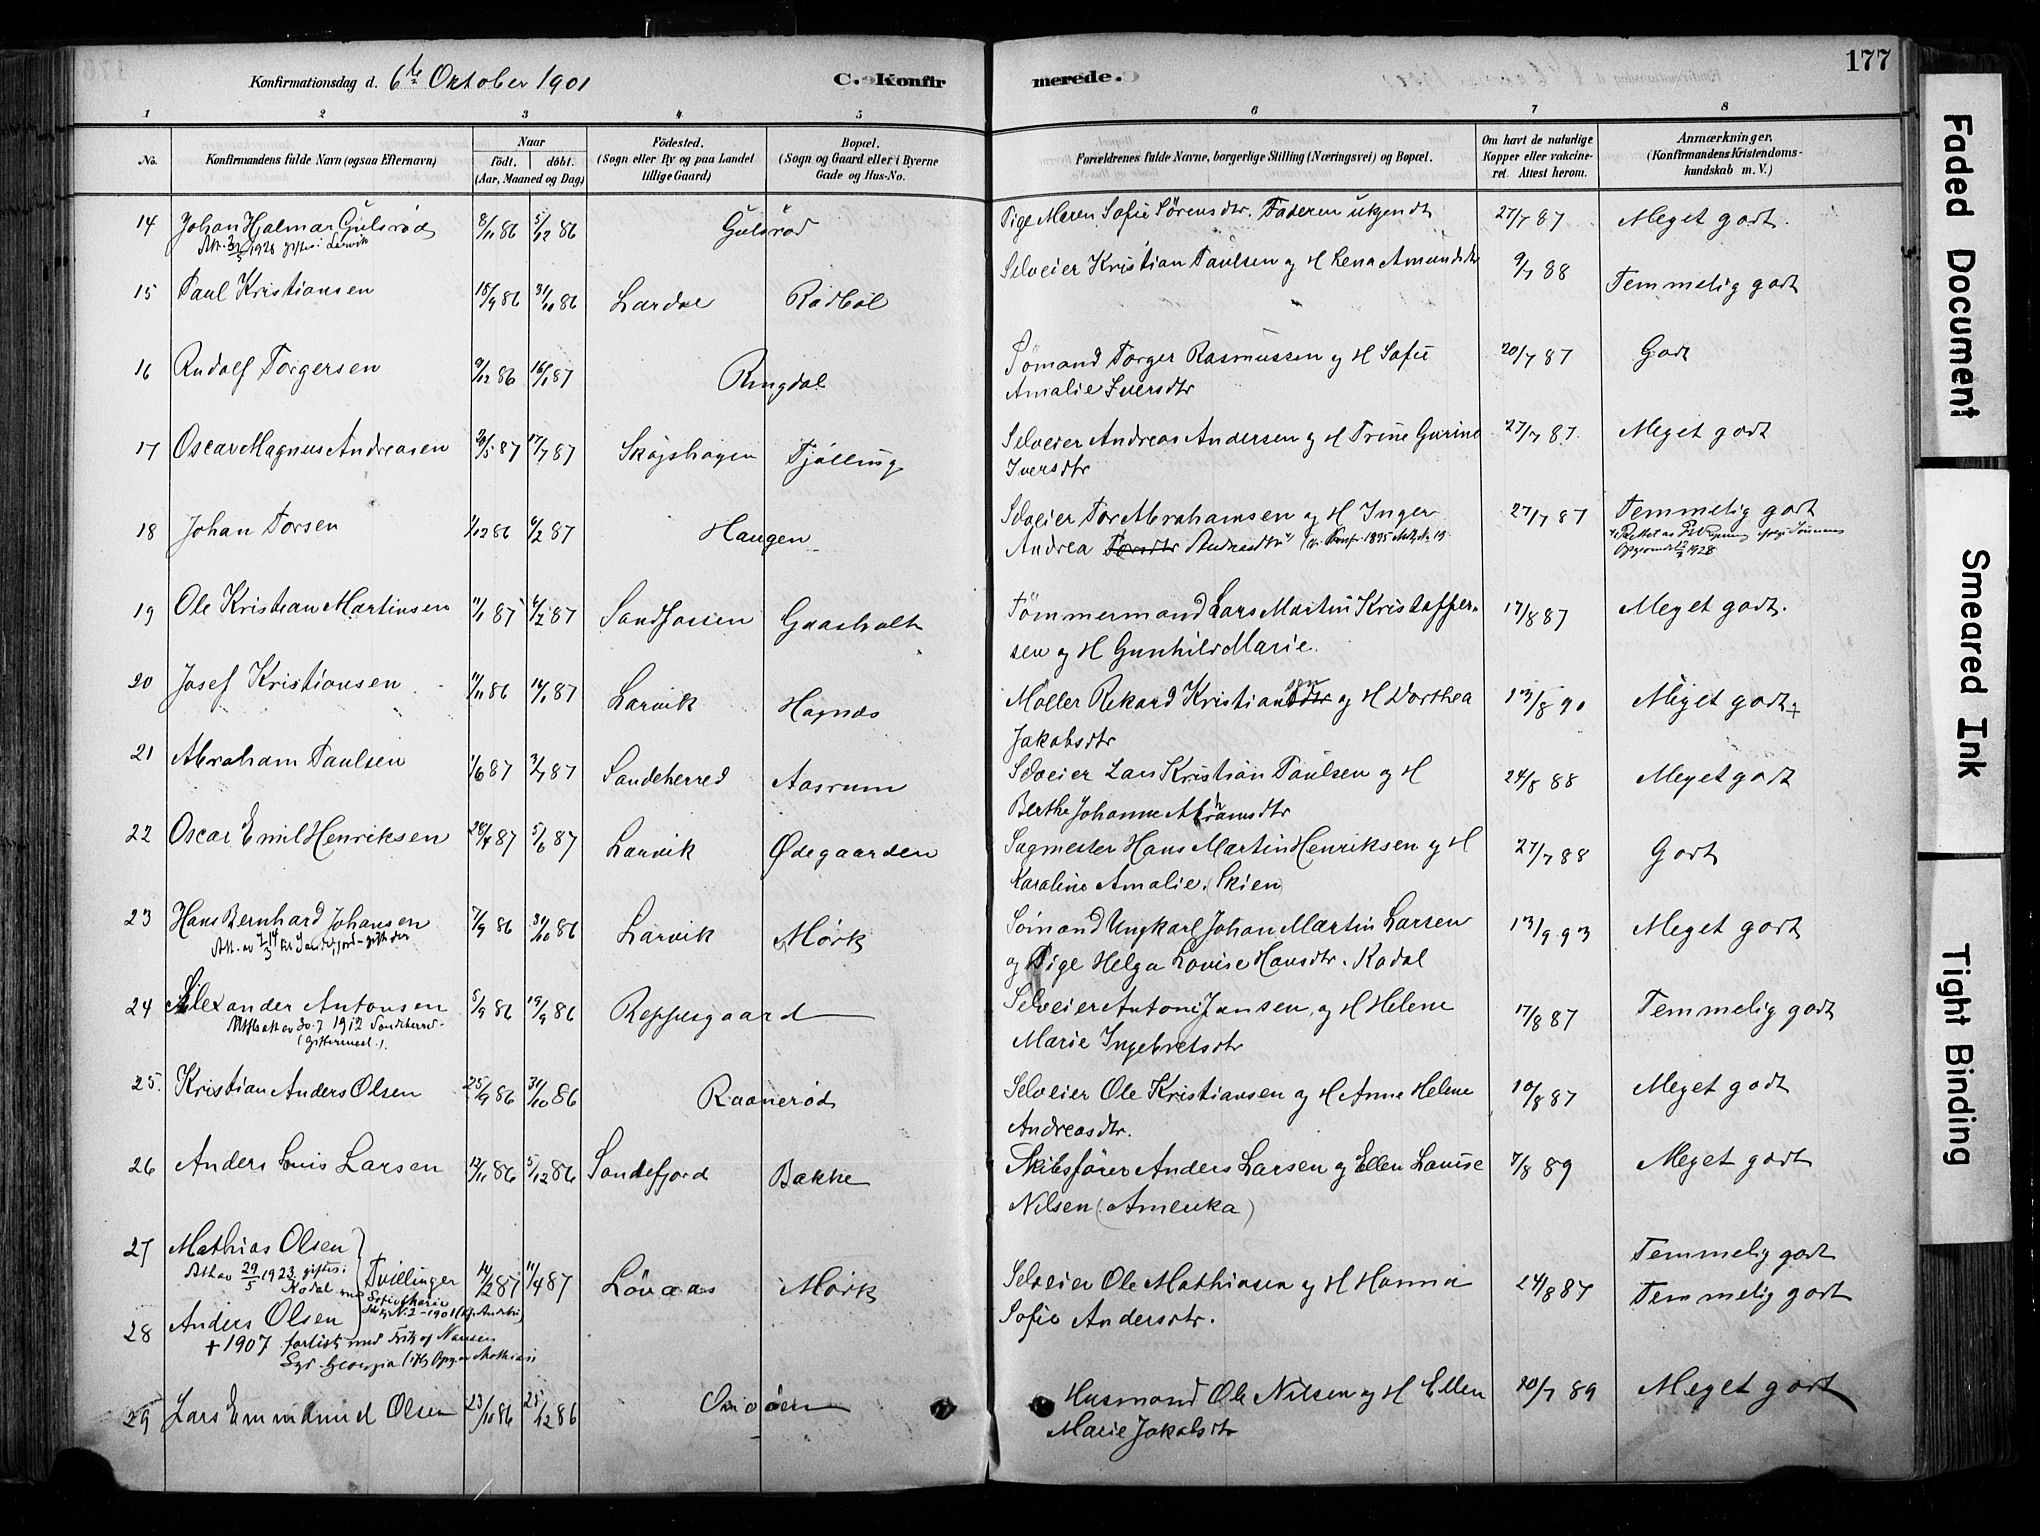 177
Konfirmationsdag d. 6te Oktober 1901
C. Konfir
merede.
1 2 3 4 5 6 7 8
No.
Konfirmandens fulde Navn (ogsaa Efternavn)
Naar
født. døbt.
(Aar, Maaned og Dag)
Fødested.
(Sogn eller By og paa Landet
tillige Gaard)
Bopæl.
(Sogn og Gaard eller i Byerne
Gade og Hus-No.
Forældrenes fulde Navne, borgerlige Stilling (Næringsvei) og Bopæl.
Om havt de naturlige
Kopper eller vakcine-
ret. Attest herom.
Anmærkninger.
(Konfirmandens Kristendoms-
kundskab m. V.)
14 Johan Hjalmar Gulsrød 8/11 86 5/12 86 Gulsrød Pige Maren Sofie Sørensdtr. Faderen ukjendt 27/7 87 Meget godt.
1928 giftes i Larvik
15 Paul Kristiansen 18/9 86 31/10 86 Lardal Rødbøl Selveier Kristian Paulsen og H Lena Amundsdtr 9/7 88 Temmelig godt
16 Rudolf Torgersen 9/12 86 16/1 87 Ringdal Sømand Torger Rasmussen og H Sofie 20/7 87 Godt
Amalie Iversdtr
17 Oscar Magnus Andreasen 20/5 87 17/7 87 Skojshagen Tjølling Selveier Andreas Andersen og H Trine Gurine 27/7 87. Meget godt
Iversdtr
18 Johan Torsen 1/12 86 6/2 87 Haugen Selveier Tor Abrahamsen og H Inger 27/7 87 Temmelig godt
Andrea Torsdtr Andreasdtr
1928
19 Ole Kristian Martinsen 11/1 87 6/2 87 Sandsossen Gaasholt Tømmermand Lars Martin Kristoffer- 17/8 87 Meget godt.
sen og H Gunhild Marie.
20 Josef Kristiansen 11/11 86 16/1 87 Larvik Hagnæs Møller Rekard Kristiansdtr sen og H Dorthea 13/8 90 Meget godt +
Jakobsdtr
21 Abraham Paulsen 1/6 87 3/7 87 Sandeherred Aasrum Selveier Lars Kristian Paulsen og H 24/8 88 Meget godt
Berthe Johanne Abramsdtr
22 Oscar Emil Henriksen 28/4 87 5/6 87 Larvik Ødegaarden Sagmester Hans Martin Henriksen og H 27/7 88 Godt
Karaline Amalie. (Skien)
23 Hans Bernhard Johansen 7/9 86 31/10 86 Larvik Mørk Sømand Ungkarl Johan Martin Larsen 13/9 93 Meget godt
og Pige Helga Lovise Hansdtr. Kodal
24 Alexander Antonsen 5/9 86 19/9 86 Reppesgaard Selveier Anton Jansen og H Helene 17/8 87 Temmelig godt
30.7 1912 Sandeherred.
Marie Ingebretsdtr
25. Kristian Anders Olsen 25/9 86 31/10 86 Raanerød Selveier Ole Kristiansen og H Anne Helene 10/8 87 Meget godt
Andreasdtr.
26 Anders Louis Larsen 12/11 86 5/12 86 Sandefjord Bakke Skibsfører Anders Larsen og Ellen Lauise 7/8 89 Meget godt
Nilsen (Amerika)
27 Mathias Olsen Temmelig godt
29/5 1923 giftes i Kodal Tvillinger 14/2 87 11/4 87 Løvaas Mørk Selveier Ole Mathiasen og H Hanna 24/8 87 Temmelig godt
28 Anders Olsen Sofie Andersdtr.
+ 1907 forlist med Fritjof Nansen
Syd-Georgia
29 Lars Emmanuel Olsen 23/11 86 25/12 86 Husmand Ole Nilsen og H Ellen 20/7 89 Meget godt
Marie Jakobsdtr
Faded Document
Smeared Ink
Tight Binding